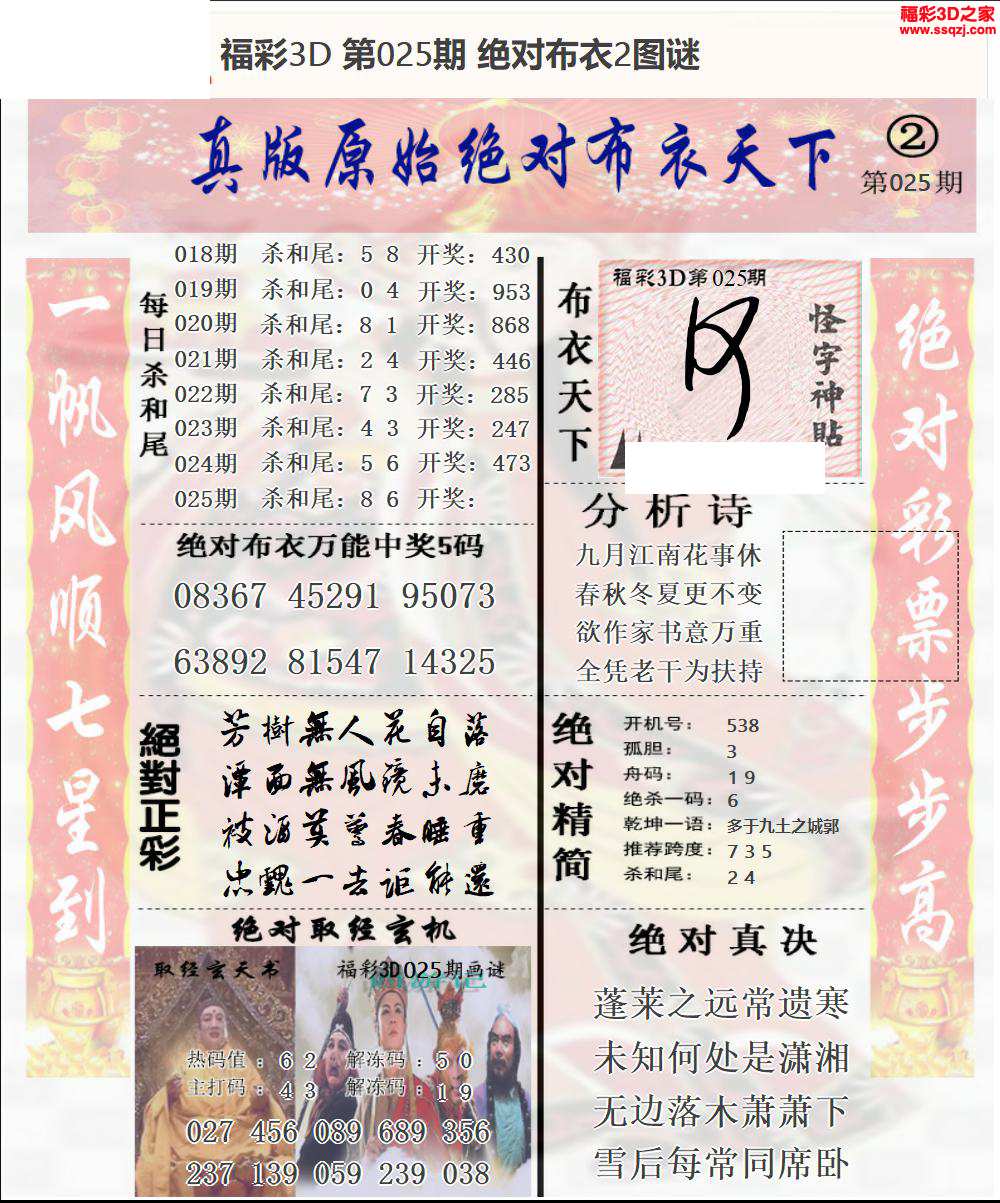 福彩3D之家
www.ssqzj.com
福彩3D 第025期 绝对布衣2图谜
真版原始绝对布衣天下
②
第025期
一帆风顺七星到
每日杀和尾
018期 杀和尾：5 8 开奖：430
019期 杀和尾：0 4 开奖：953
020期 杀和尾：8 1 开奖：868
021期 杀和尾：2 4 开奖：446
022期 杀和尾：7 3 开奖：285
023期 杀和尾：4 3 开奖：247
024期 杀和尾：5 6 开奖：473
025期 杀和尾：8 6 开奖：
绝对布衣万能中奖5码
08367 45291 95073
63892 81547 14325
絕對正彩
芳樹無人花自落
潭面無風鏡未磨
被酒莫驚春睡重
忠魂一去詎能還
绝对取经玄机
取经玄天书
福彩3D025期画谜
热码值：6 2 解冻码：5 0
主打码：4 3 解冻码：1 9
027 456 089 689 356
237 139 059 239 038
布衣天下
福彩3D第025期
怪字神貼
分析诗
九月江南花事休
春秋冬夏更不变
欲作家书意万重
全凭老干为扶持
绝对精简
开机号：538
孤胆：3
舟码：1 9
绝杀一码：6
乾坤一语：多于九土之城郭
推荐跨度：7 3 5
杀和尾：2 4
绝对真决
蓬莱之远常遗寒
未知何处是潇湘
无边落木萧萧下
雪后每常同席卧
绝对彩票步步高